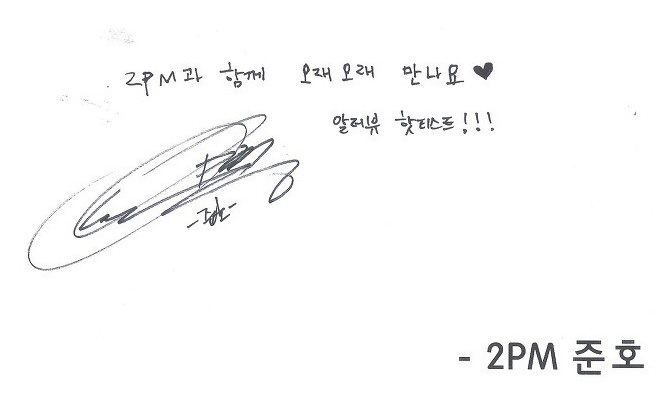 2PM과 함께 오래오래 만나요♥
알러뷰 핫티스트!!!
-준호-
- 2PM 준호